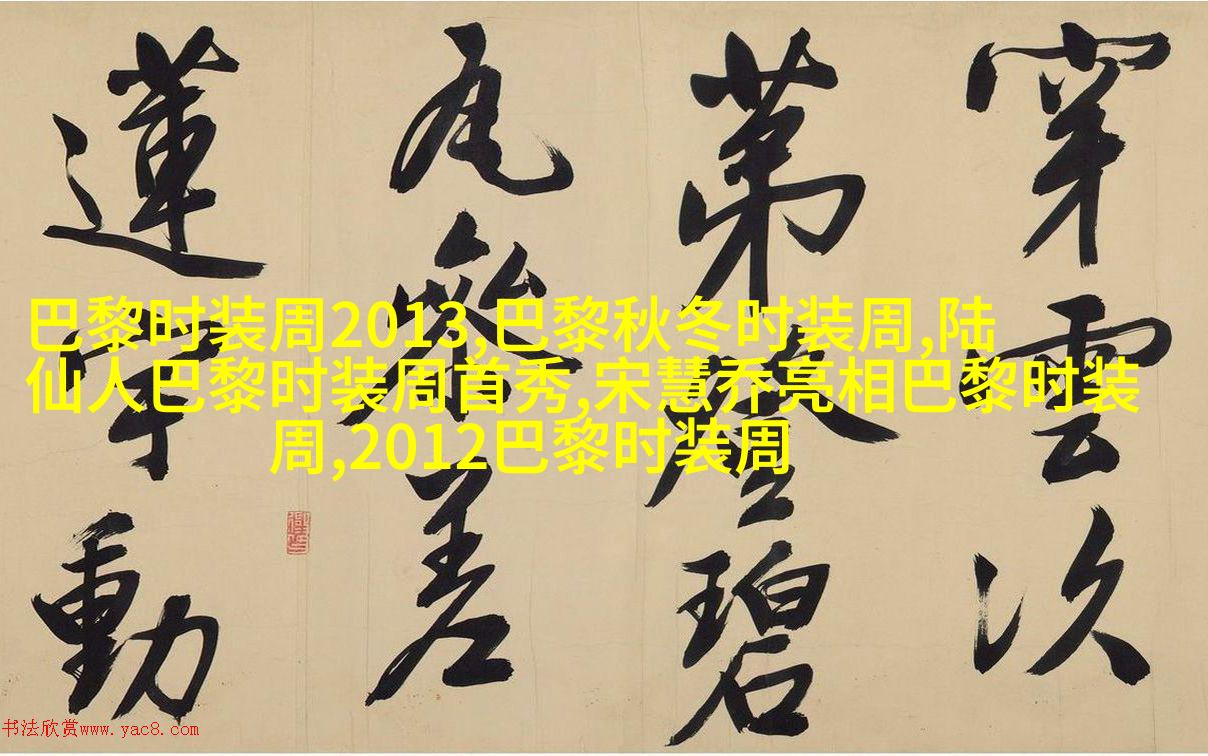 巴黎时装周2013,巴黎秋冬时装周,陆
仙人巴黎时装周首秀,宋慧乔亮相巴黎时装
周,2012巴黎时装周
穿雲次
第碧
瓦參差
蓮宇動
书法欣赏www.yac8.com